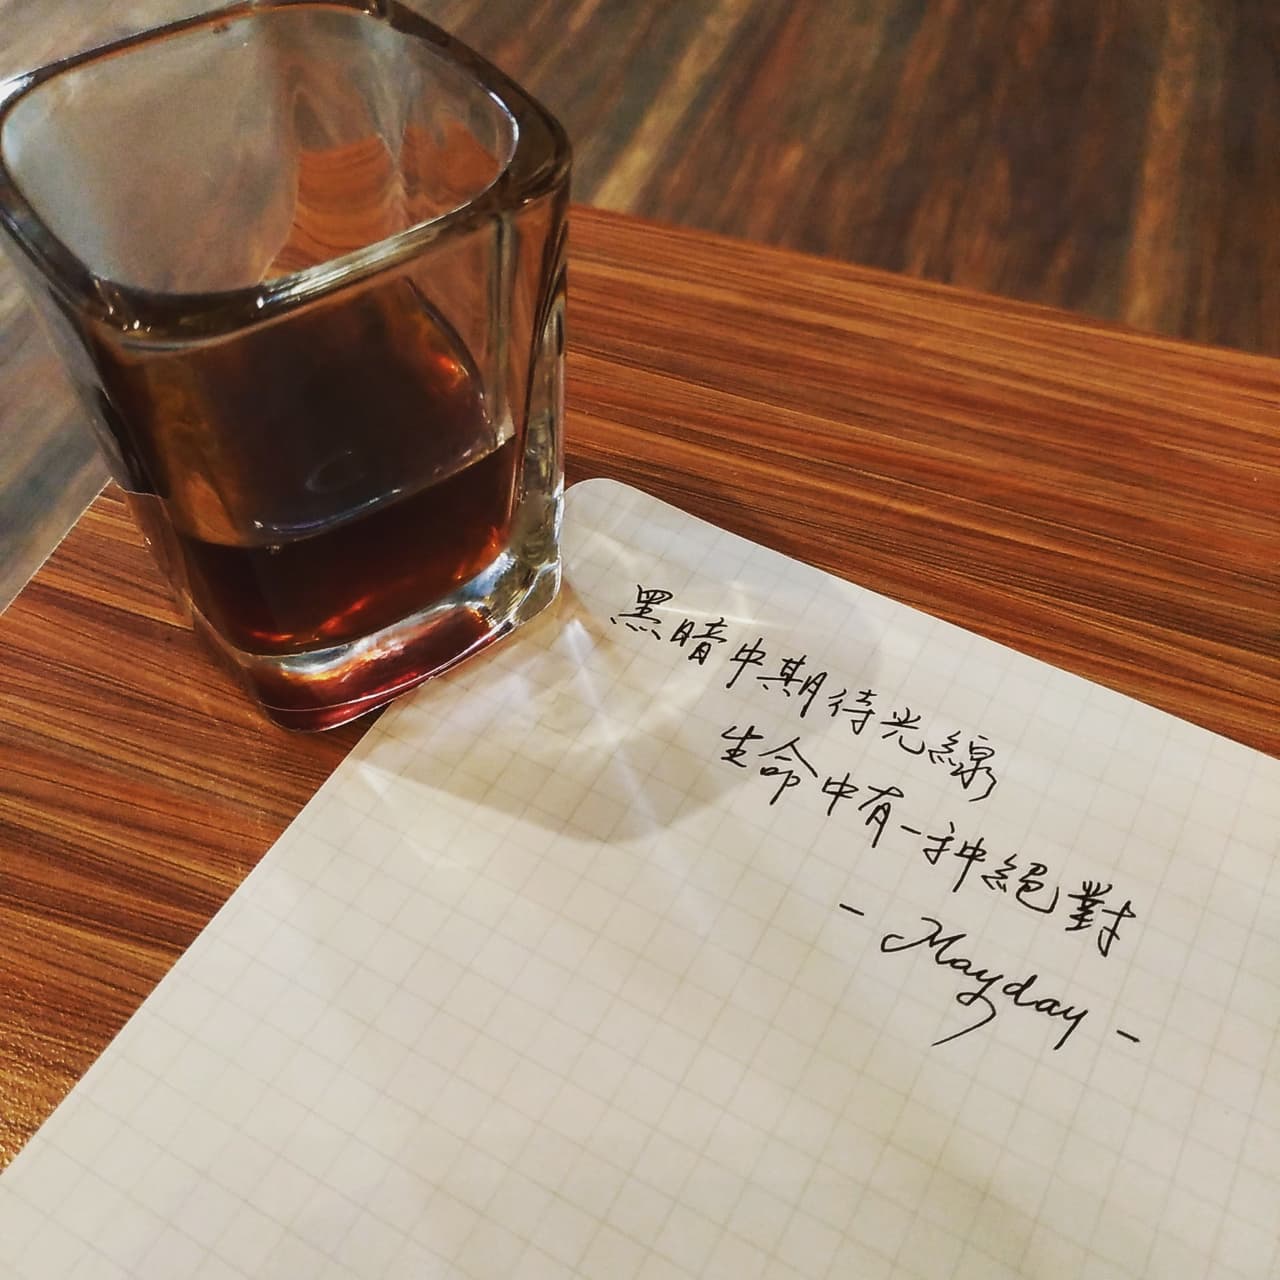 黑暗中期待光線
生命中有一种絕對
- Mayday -